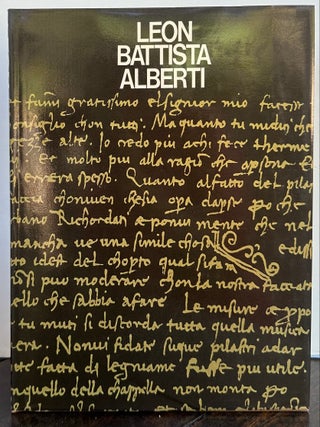 LEON
BATTISTA
ALBERTI
fumi gratissimo el signor mio facessi
onsiglio chon tutti. Ma quanto tu mi dici che
alte. Io redo piu achi fece therme
Et molto piu alla ragiõ che apsona E
errera spesso. Quanto alfatto del pilas
accia chonuien chesia opa dapse po che
Richordati e ponui mente che nel
mancha ue una simile chosa
edisse
to idest del chopto qual si fam
si puo moderare chon la nostra faccata
ello che sabbia afare Le misure e ppo
tu muti si discorda tutta quella musica
era. Nonui fidate suque pilastri adar
te fatta di legname fusse piu utile.
nquello della chappella non monta po